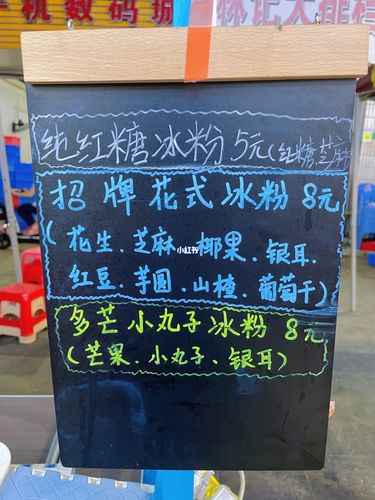 手机数码城
林记大排档
纯红糖冰粉 5元(红糖.芝麻)
招牌花式冰粉 8元
(花生.芝麻.椰果.银耳.
红豆.芋圆.山楂.葡萄干)
多芒小丸子冰粉 8元
(芒果.小丸子.银耳)
小红书